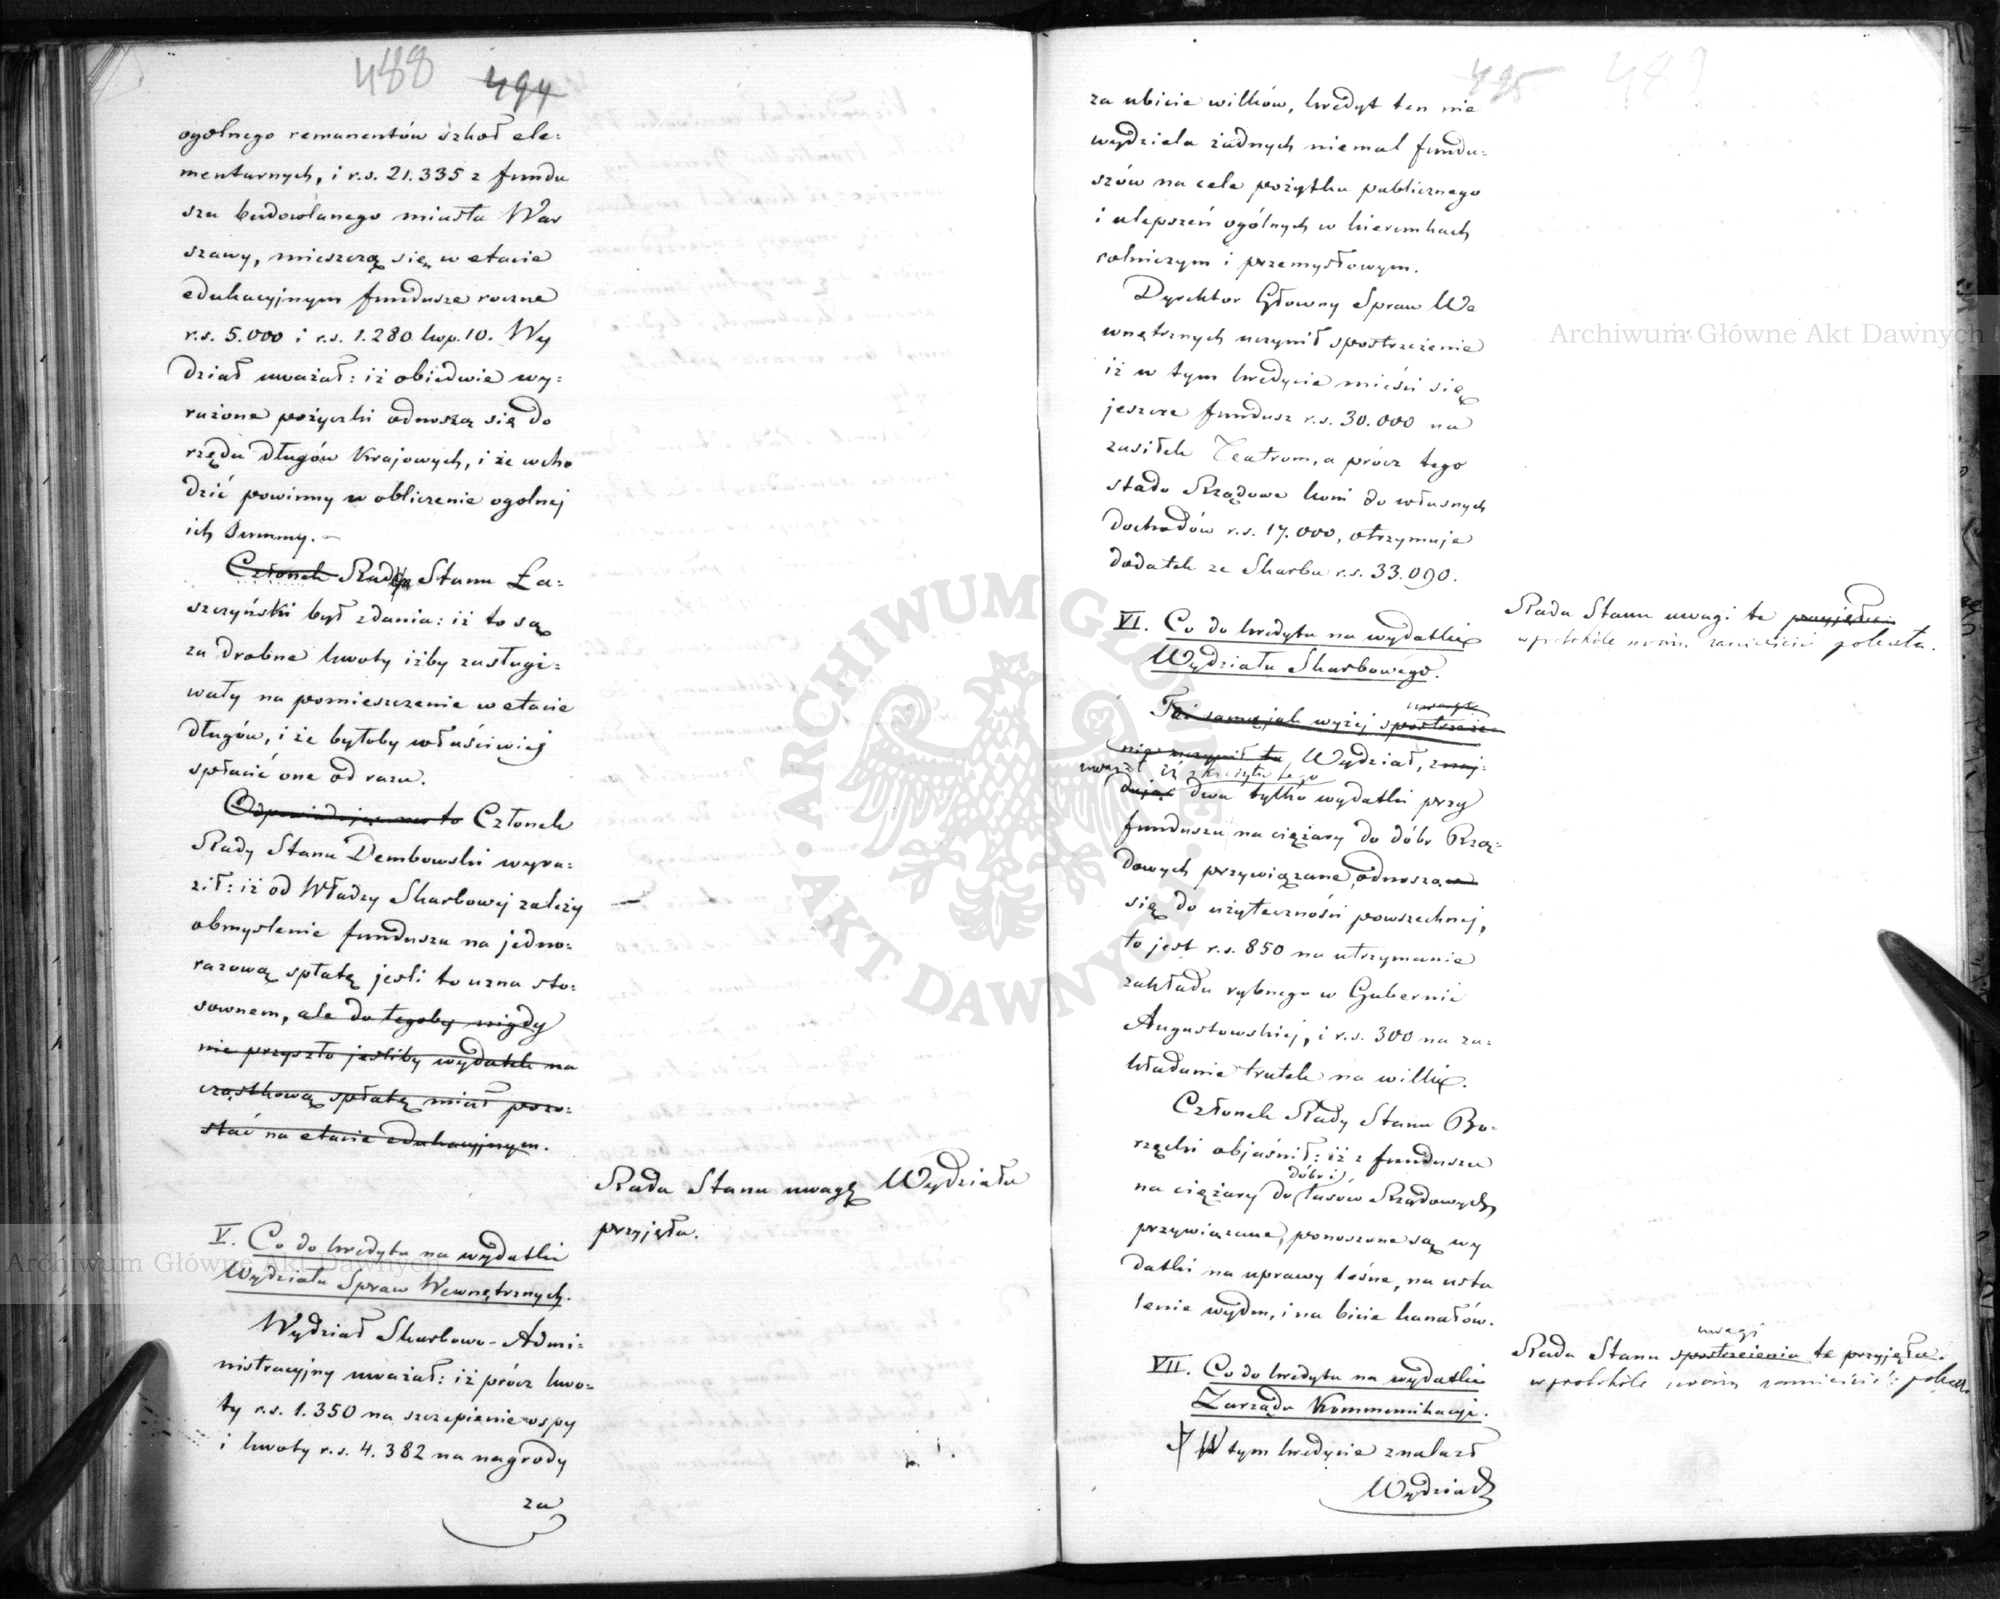 488 494
ogolnego remanentów szkoł ele=
mentarnych, i r.s. 21.335 z fundu
szu budowlanego miasta War
szawy, mieszczą się w etacie
edukacyjnym fundusze roczne
r.s. 5.000 i r.s. 1.280 kop. 10. Wy
dział uważał: iż obiedwie wy=
rażone pożyczki odnoszą się do
rzędu długów Krajowych, i że wcho
dzić powinny w obliczenie ogolnej
ich Summy.
Członek Rady Stanu Ła=
szczyński był zdania: iż to są
za drobne kwoty iżby zasługi=
wały na pomieszczenie w etacie
długów, i że byłoby właściwiej
spłacić one od razu.
Odpowiadając na to Członek
Rady Stanu Dembowski wyra=
ził: iż od Władzy Skarbowej zależy
obmyslenie funduszu na jedno=
razową spłatę jesli to uzna sto=
sownem, ale do tegoby nigdy
nie przyszło jesliby wydatek na
cząstkową spłatę miał pozo=
stać na etacie edukacyjnym.
Rada Stanu uwagę Wydziału
przyjęła.
V. Co do kredytu na wydatki
Wydziału Spraw Wewnętrznych.
Wydział Skarbowo-Admi=
nistracyjny uważał: iż prócz kwo=
ty r.s. 1.350 na szczepienie ospy
i kwoty r.s. 4.382 na nagrody
za
495 489
za ubicie wilków, kredyt ten nie
wydziela żadnych niemal fundu=
szów na cele pożytku publicznego
i ulepszeń ogólnych w kierunkach
rolniczym i przemysłowym.
Dyrektor Główny Spraw We
wnętrznych uczynił spostrzeżenie
iż w tym kredycie mieści się
jeszcze fundusz r.s. 30.000 na
zasiłek Teatrom, a prócz tego
stado Rządowe koni do własnych
dochodów r.s. 17.000, otrzymuje
dodatek ze Skarbu r.s. 33.090.
Rada Stanu uwagi te przyjęła
w protokóle swoim zamieścić poleciła.
VI. Co do kredytu na wydatki
Wydziału Skarbowego.
uwagę
Też samę jak wyżej spostrzeże=
nie uczynił tu Wydział, znaj=
uważał iż z kredytu tego
dując dwa tylko wydatki przy
funduszu na ciężary do dóbr Rzą=
dowych przywiązane, odnoszą
się do użyteczności powszechnej,
to jest r.s. 850 na utrzymanie
zakładu rybnego w Gubernii
Augustowskiej, i r.s. 300 na za=
kładanie trutek na wilki.
Członek Rady Stanu Bo=
rzęcki objaśnił: iż z funduszu
dóbr i
na ciężary do lasów Rządowych
przywiązane, ponoszone są wy
datki na uprawy leśne, na usta
lenie wydm, i na bicie kanałów.
uwagi
Rada Stanu spostrzeżenia te przyjęła.
w protokóle swoim zamieścić
VII. Co do kredytu na wydatki
Zarządu Kommunikacji.
W tym kredycie znalazł
Wydział
Archiwum Główne Akt Dawnych
Archiwum Główne Akt Dawnych
ARCHIWUM GŁÓWNE AKT DAWNYCH